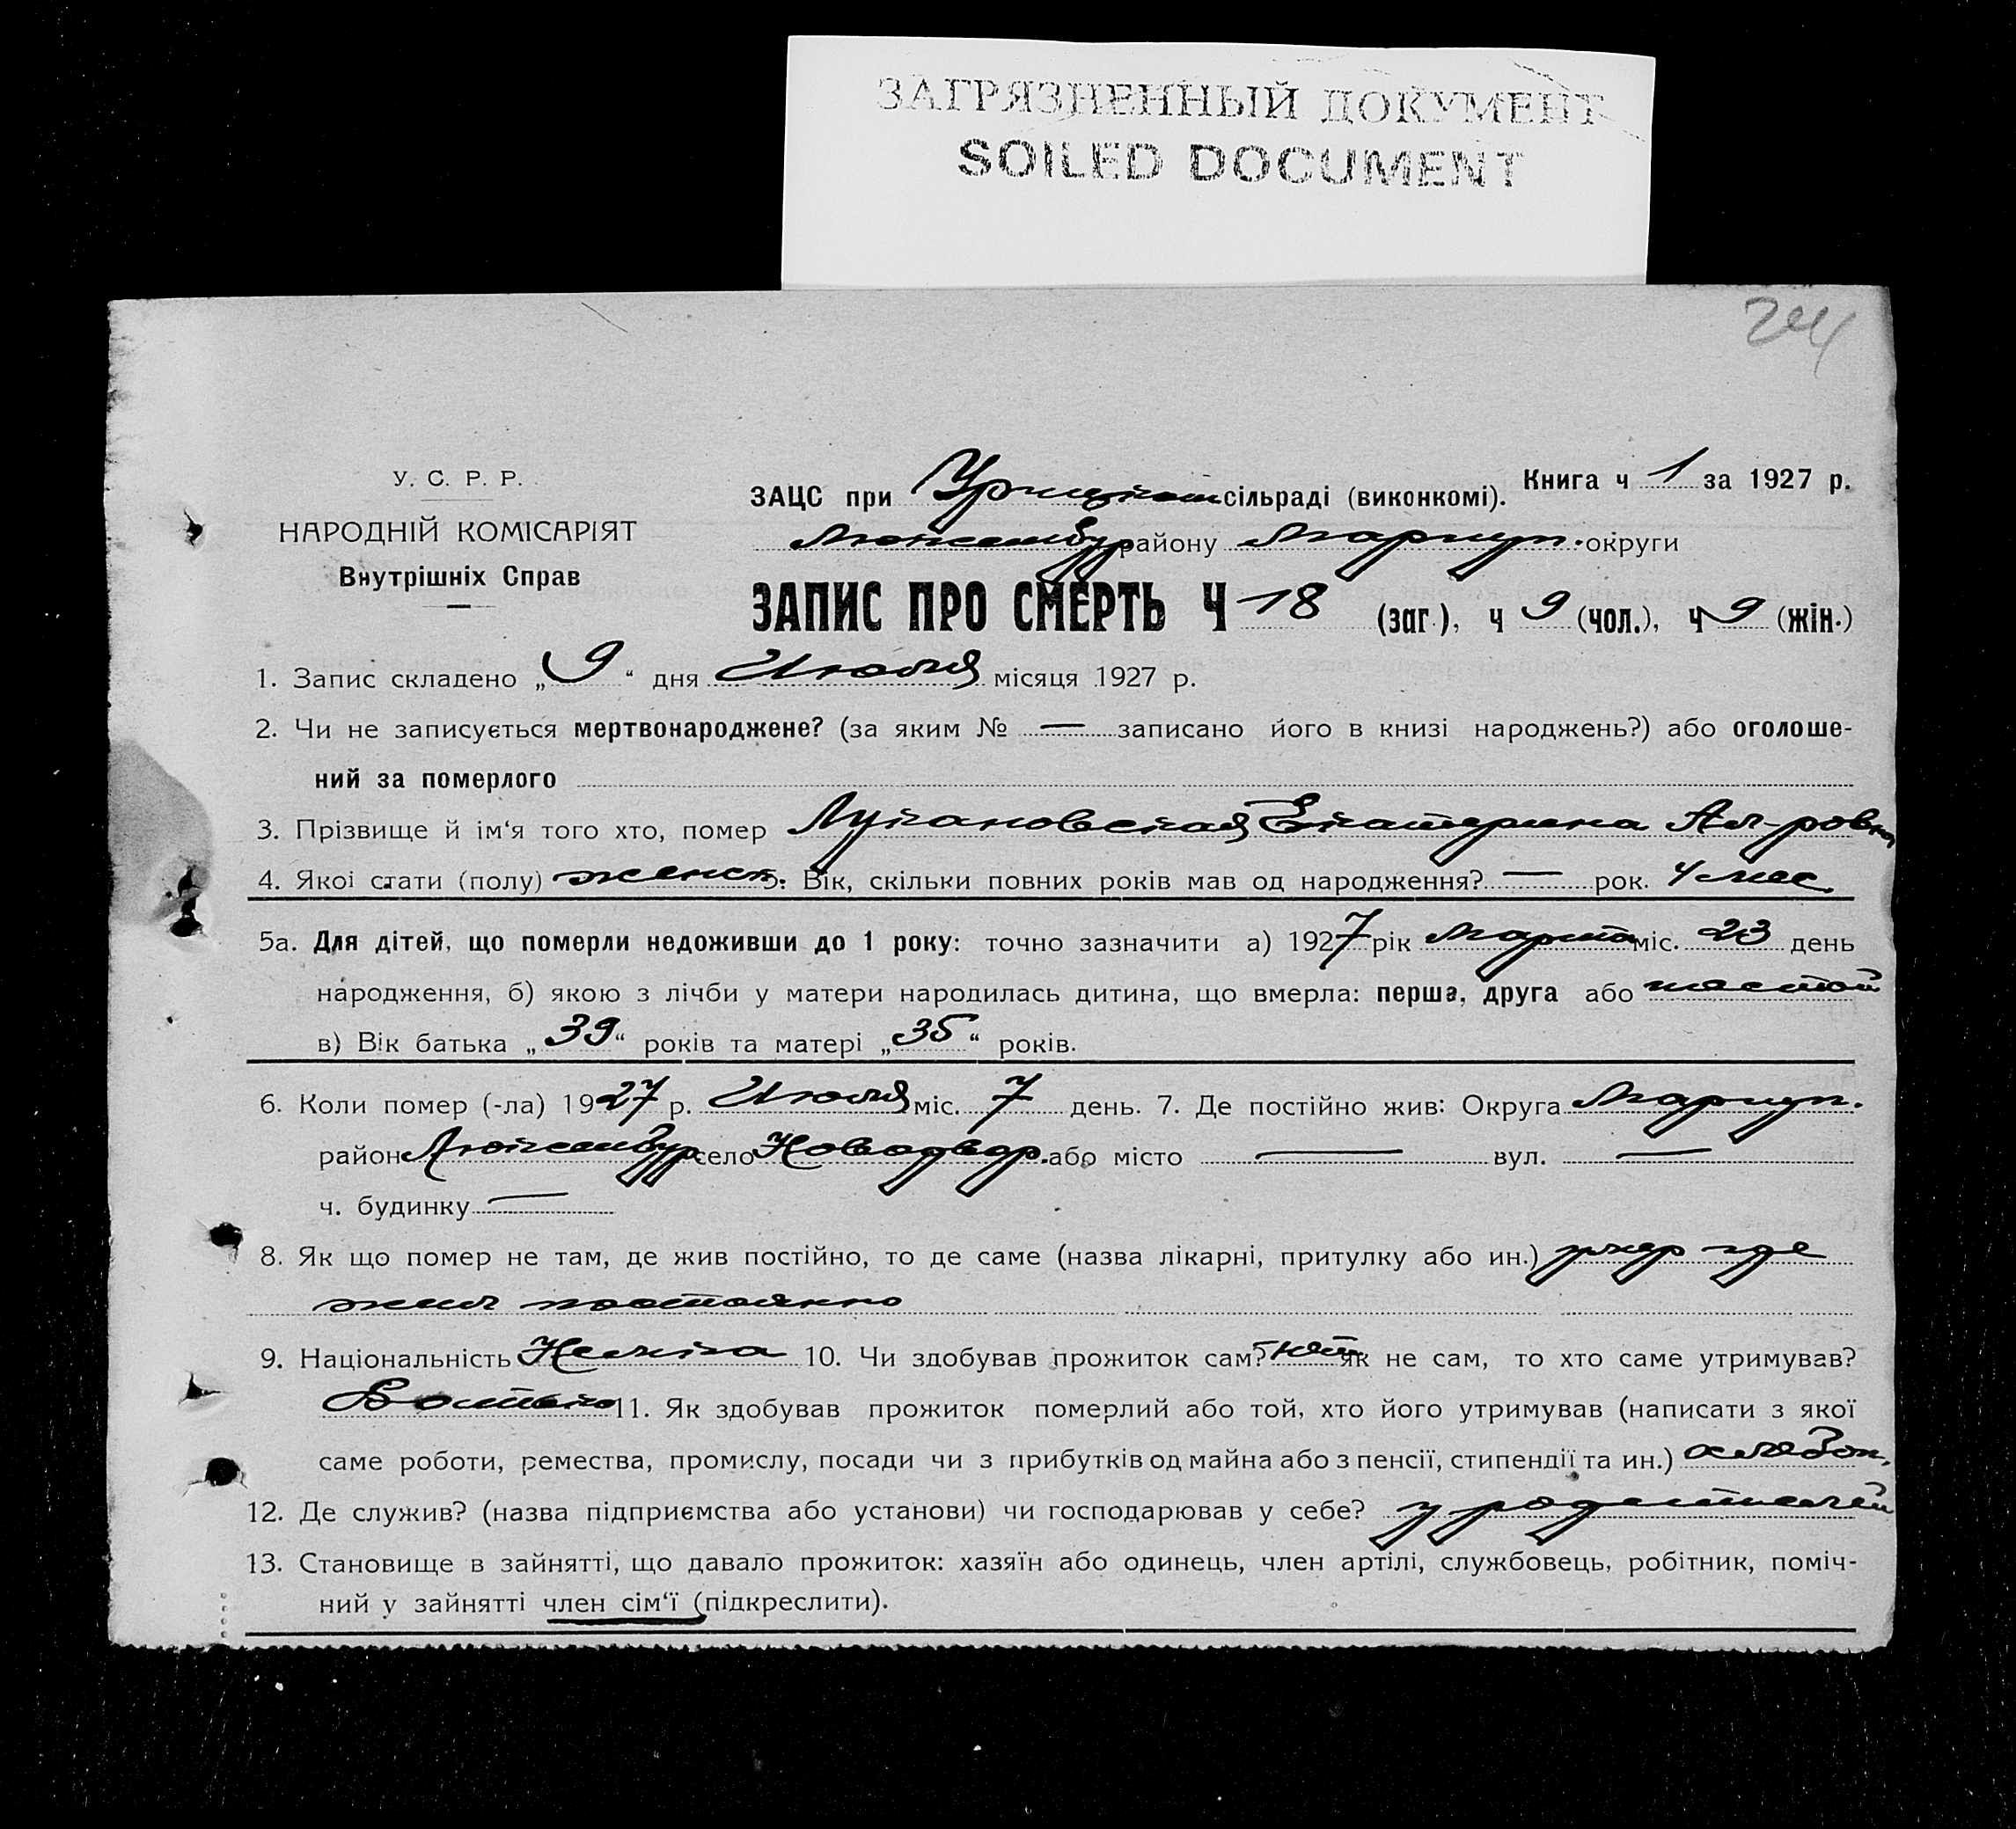 ЗАГРЯЗНЕННЫЙ ДОКУМЕНТ
SOILED DOCUMENT
24
У. С. Р. Р.
НАРОДНІЙ КОМІСАРІЯТ
Внутрішніх Справ
ЗАЦС при Урицком сільраді (виконкомі). Книга ч 1 за 1927 р.
Люксембур району Мариуп. округи
ЗАПИС ПРО СМЕРТЬ Ч 18 (заг.), ч 9 (чол.), ч 9 (жін.)
1. Запис складено „ 9 “ дня Июля місяця 1927 р.
2. Чи не записується мертвонароджене? (за яким № — записано його в книзі народжень?) або оголоше-
ний за померлого
3. Прізвище й ім‘я того хто, помер Лукановская Екатерина Ал-ровна
4. Якої стати (полу) женск. 5. Вік, скільки повних років мав од народження? — рок. 4 мес.
5а. Для дітей, що померли недоживши до 1 року: точно зазначити а) 1927 рік Марта міс. 23 день
народження, б) якою з лічби у матери народилась дитина, що вмерла: перша, друга або шестой
в) Вік батька „ 39 “ років та матері „ 35 “ років.
6. Коли помер (-ла) 1927 р. Июля міс. 7 день. 7. Де постійно жив: Округа Мариуп.
район Люксембур село Новодвор. або місто — вул. —
ч. будинку —
8. Як що помер не там, де жив постійно, то де саме (назва лікарні, притулку або ин.) умер где
жил постоянно
9. Національність Немка 10. Чи здобував прожиток сам? нет як не сам, то хто саме утримував?
Батько 11. Як здобував прожиток померлий або той, хто його утримував (написати з якої
саме роботи, ремества, промислу, посади чи з прибутків од майна або з пенсії, стипендії та ин.) хлебоп.
12. Де служив? (назва підприємства або установи) чи господарював у себе? у родителей
13. Становище в зайнятті, що давало прожиток: хазяїн або одинець, член артілі, службовець, робітник, поміч-
ний у зайнятті член сім‘ї (підкреслити).